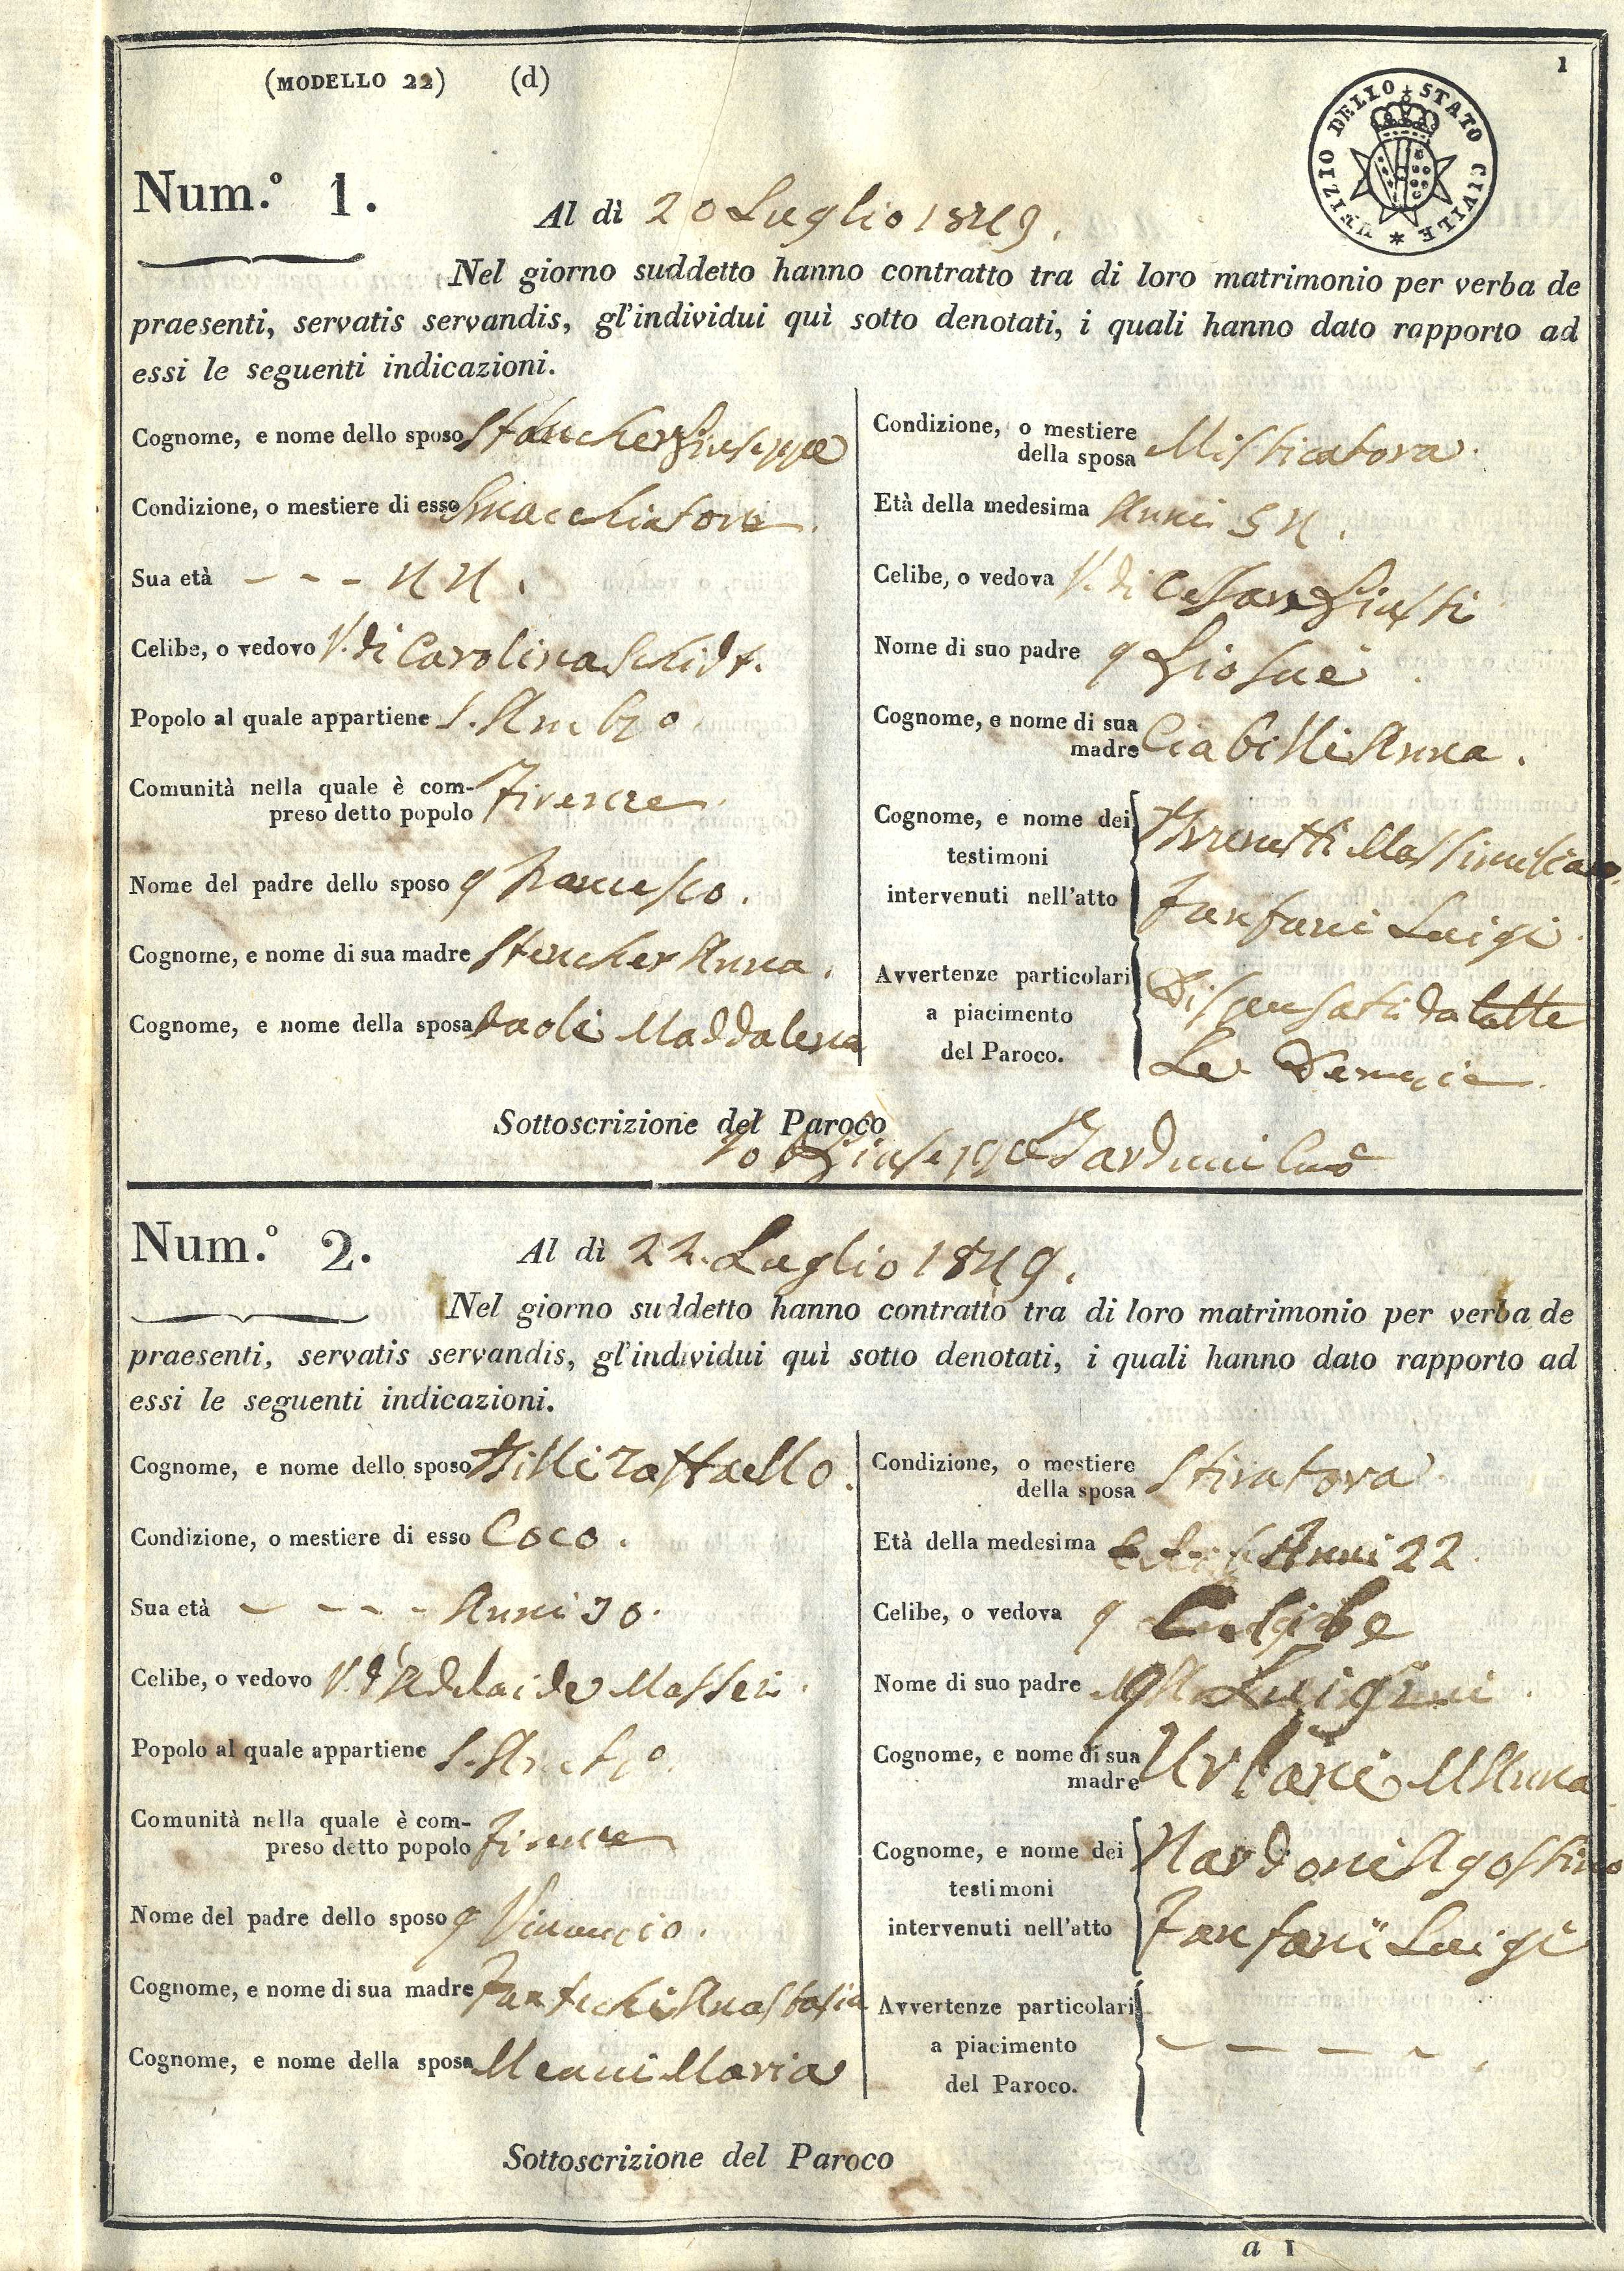 (MODELLO 22) (d)
1
UFIZIO DELLO STATO CIVILE
Num.º 1.
Al dì 20 Luglio 1849.
Nel giorno suddetto hanno contratto tra di loro matrimonio per verba de
praesenti, servatis servandis, gl'individui quì sotto denotati, i quali hanno dato rapporto ad
essi le seguenti indicazioni.
Cognome, e nome dello sposo Giuseppe
Condizione, o mestiere di esso Smacchiatore.
Sua età - - - 44.
Celibe, o vedovo V. di Carolina
Popolo al quale appartiene S. Ambº.
Comunità nella quale è com-
preso detto popolo Firenze.
Nome del padre dello sposo q Francesco.
Cognome, e nome di sua madre Stencher Anna.
Cognome, e nome della sposa Paoli Maddalena
Condizione, o mestiere
della sposa
Età della medesima Anni 54.
Celibe, o vedova V. di Cesare Giusti
Nome di suo padre q Giosuè.
Cognome, e nome di sua
madre Ciabilli Anna.
Cognome, e nome dei
testimoni
intervenuti nell'atto
Fanfani Luigi.
Avvertenze particolari
a piacimento
del Paroco.
Dispensati da tutte
Le Denunzie.
Sottoscrizione del Paroco
Io Giuseppe
Num.º 2.
Al dì 22. Luglio 1849.
Nel giorno suddetto hanno contratto tra di loro matrimonio per verba de
praesenti, servatis servandis, gl'individui quì sotto denotati, i quali hanno dato rapporto ad
essi le seguenti indicazioni.
Cognome, e nome dello sposo Raffaello.
Condizione, o mestiere di esso Coco.
Sua età - - - - Anni 30.
Celibe, o vedovo V. d'Adelaide Masseri.
Popolo al quale appartiene
Comunità nella quale è com-
preso detto popolo Firenze
Nome del padre dello sposo q Vincenzio.
Cognome, e nome di sua madre Fantechi Anastasia
Cognome, e nome della sposa Menni Maria
Condizione, o mestiere
della sposa Stiratora
Età della medesima Anni 22.
Celibe, o vedova Celibe
Nome di suo padre Luigi
Cognome, e nome di sua
madre Urbani M Anna
Cognome, e nome dei
testimoni
intervenuti nell'atto
Nardoni Agostino
Fanfani Luigi
Avvertenze particolari
a piacimento
del Paroco.
- - - - -
Sottoscrizione del Paroco
a I